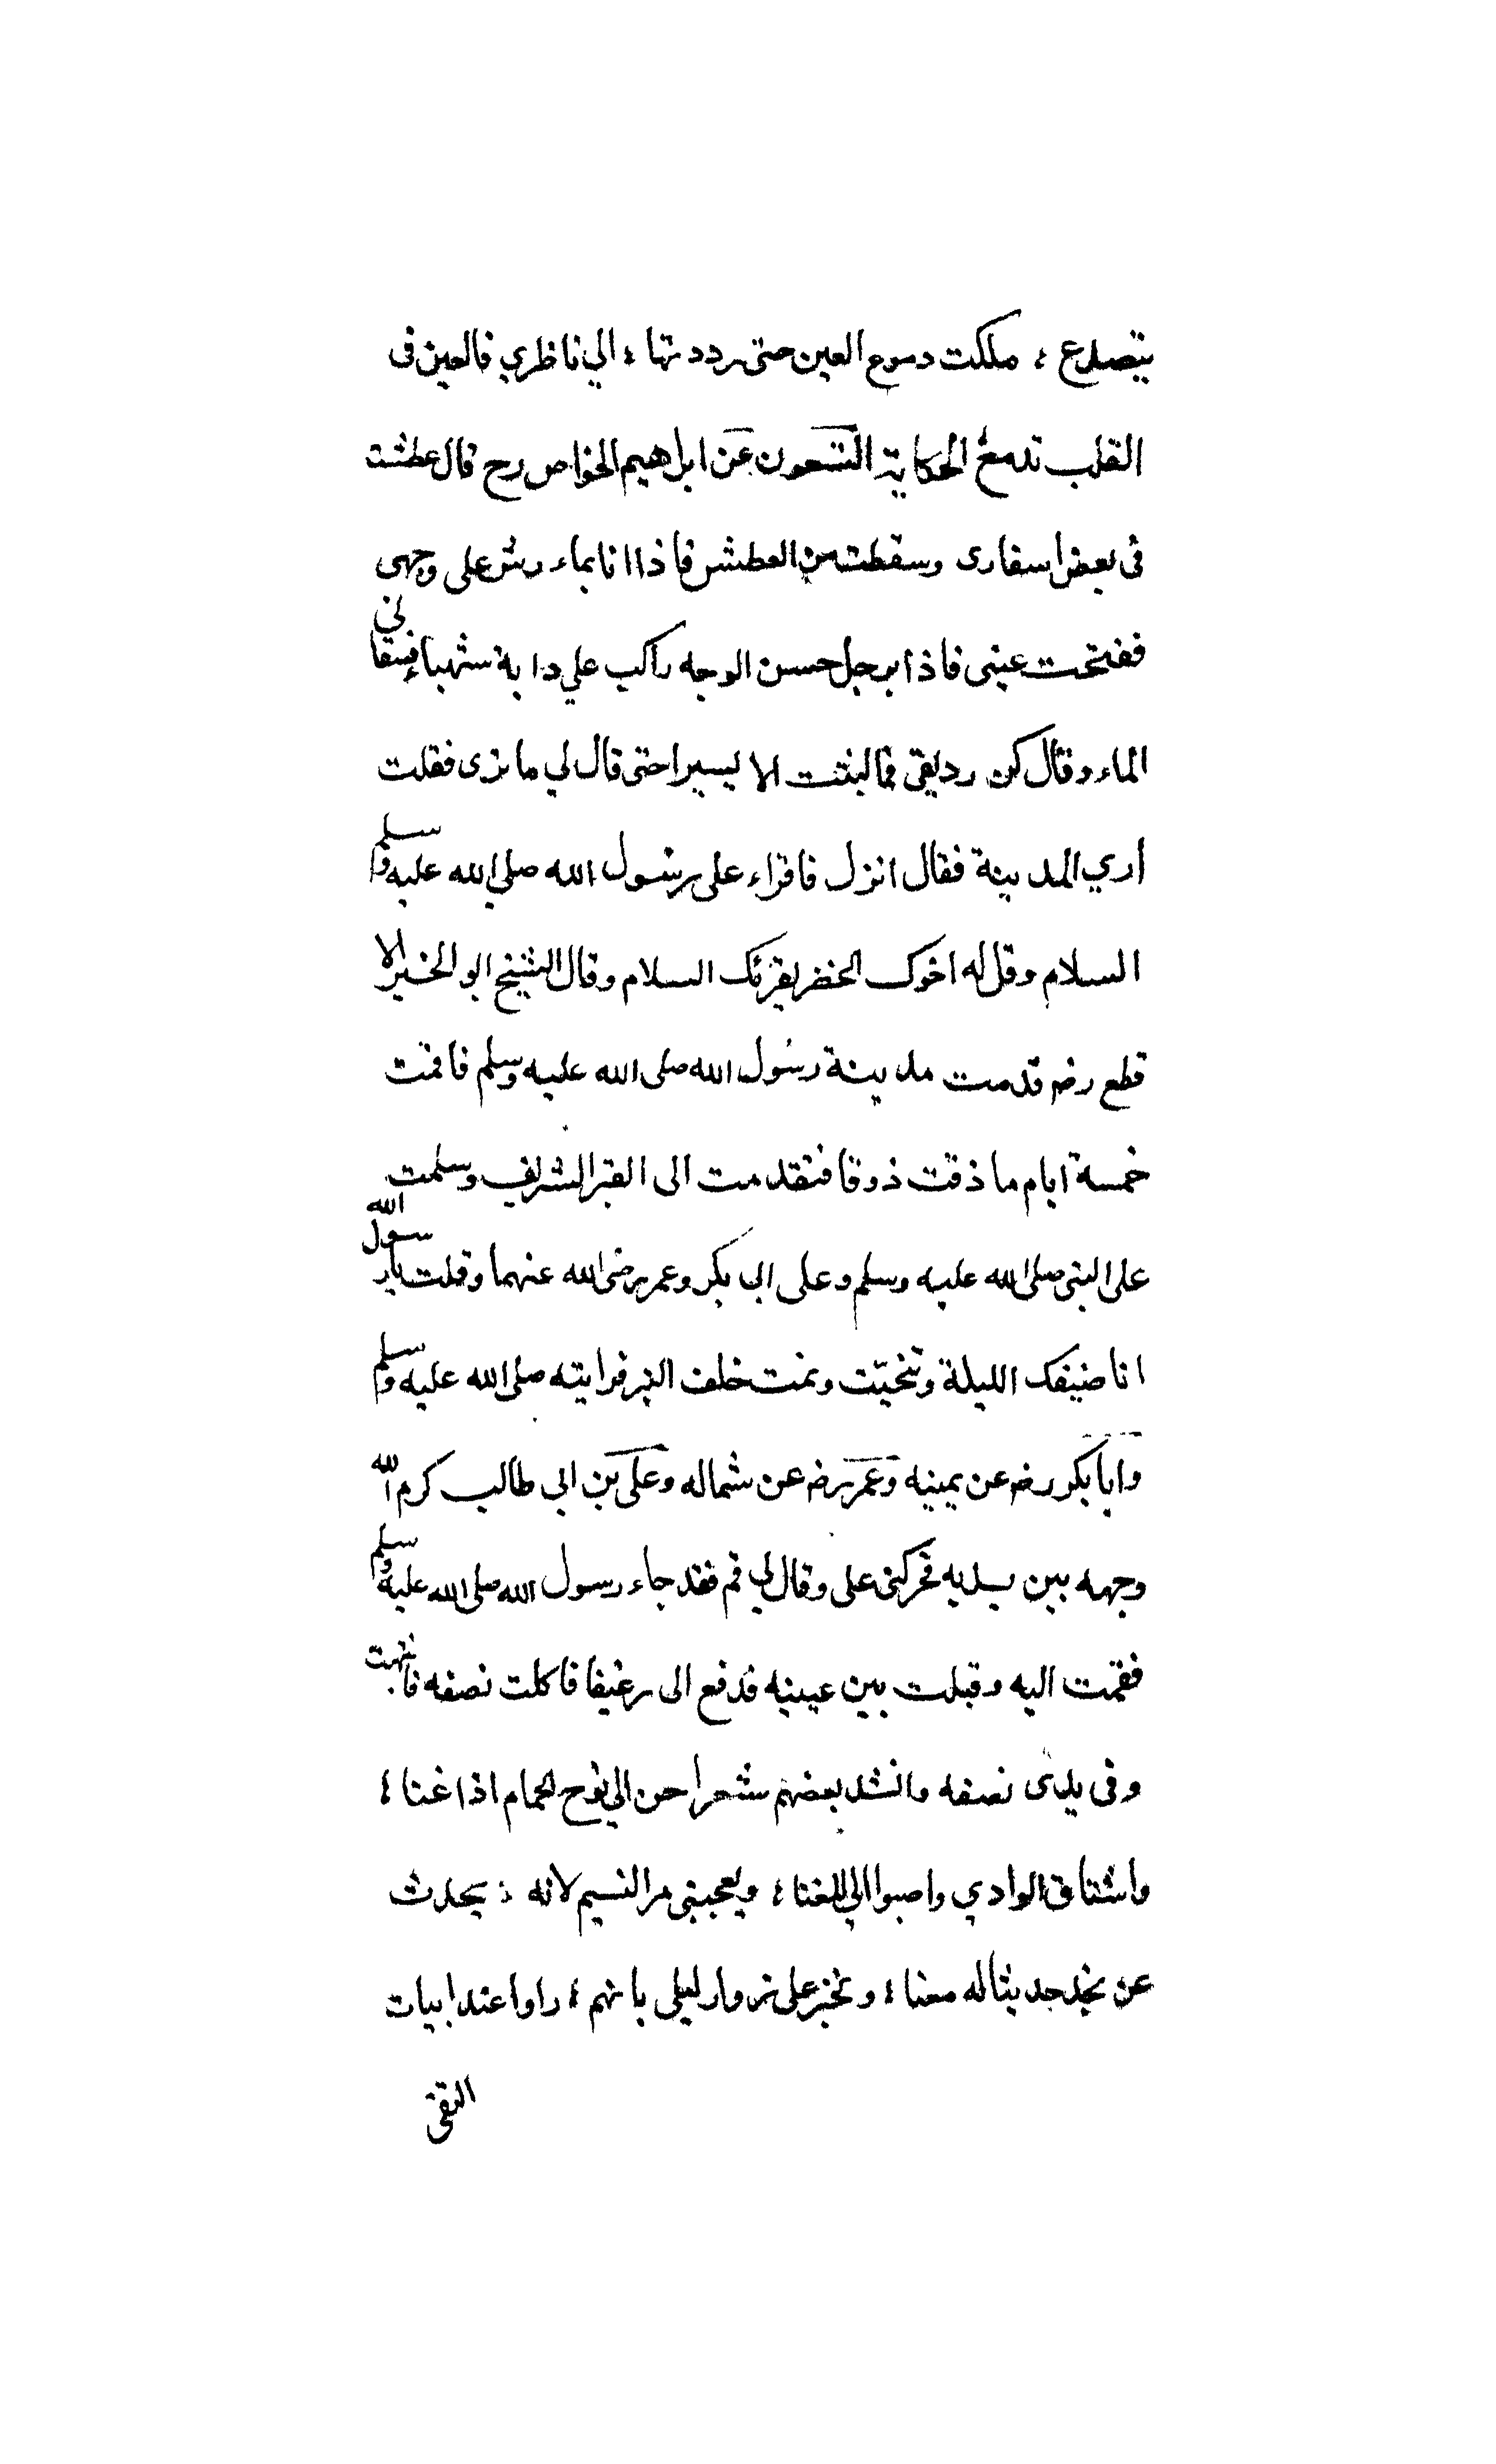 يتصدع ؛ ملكت دموع العين حتى رددتها ؛ الي ناظري فالعين فى
القلب تدمع الحكاية التسعون عن ابراهيم الخواص رح قال عطشت
فى بعض اسفارى وسقطت من العطش فاذا انا بماء رش على وجهى
ففتحت عينى فاذا برجل حسن الوجه راكب علي دابة شهباء فسقانى
الماء وقال كن رديفى فما لبثت الا يسيرا حتى قال لي ما ترى فقلت
أري المدينة فقال انزل فاقراء على رسول الله صلي الله عليه وسلم
السلام وقل له اخوك الخضر يقرئك السلام وقال الشيخ ابو الخير الا
قطع رضـ قدمت مدينة رسول الله صلى الله عليه وسلم فاقمت
خمسة ايام ما ذقت ذوقا فتقدمت الى القبر الشريف وسلمت
على النبى صلى الله عليه وسلم وعلى ابى بكر وعمر رضى الله عنهما وقلت يارسول الله
انا ضيفك الليلة وتنحيت ونمت خلف فرايته صلى الله عليه وسلم
وابا بكر رضـ عن يمينه وعمر رضـ عن شماله وعلى بن ابى طالب كرم الله
وجهه بين يديه فحركنى على وقال لي قم فقد جاء رسول الله صلى الله عليه وسلم
فقمت اليه وقبلت بين عينيه فدفع الى رغيفا فاكلت نصفه فانتبهت
وفى يدى نصفه وانشد بعضهم شعرا حن الي نوح الحمام اذا غنا ؛
واشتاق الوادي واصبوا الي للغنا ؛ ويعجبنى مر النسيم لانه ؛ يحدث
عن نجد حديثا له معنا ؛ وتخبر على زوار ليلى بانهم ؛ راوا عند ابيات
النقى